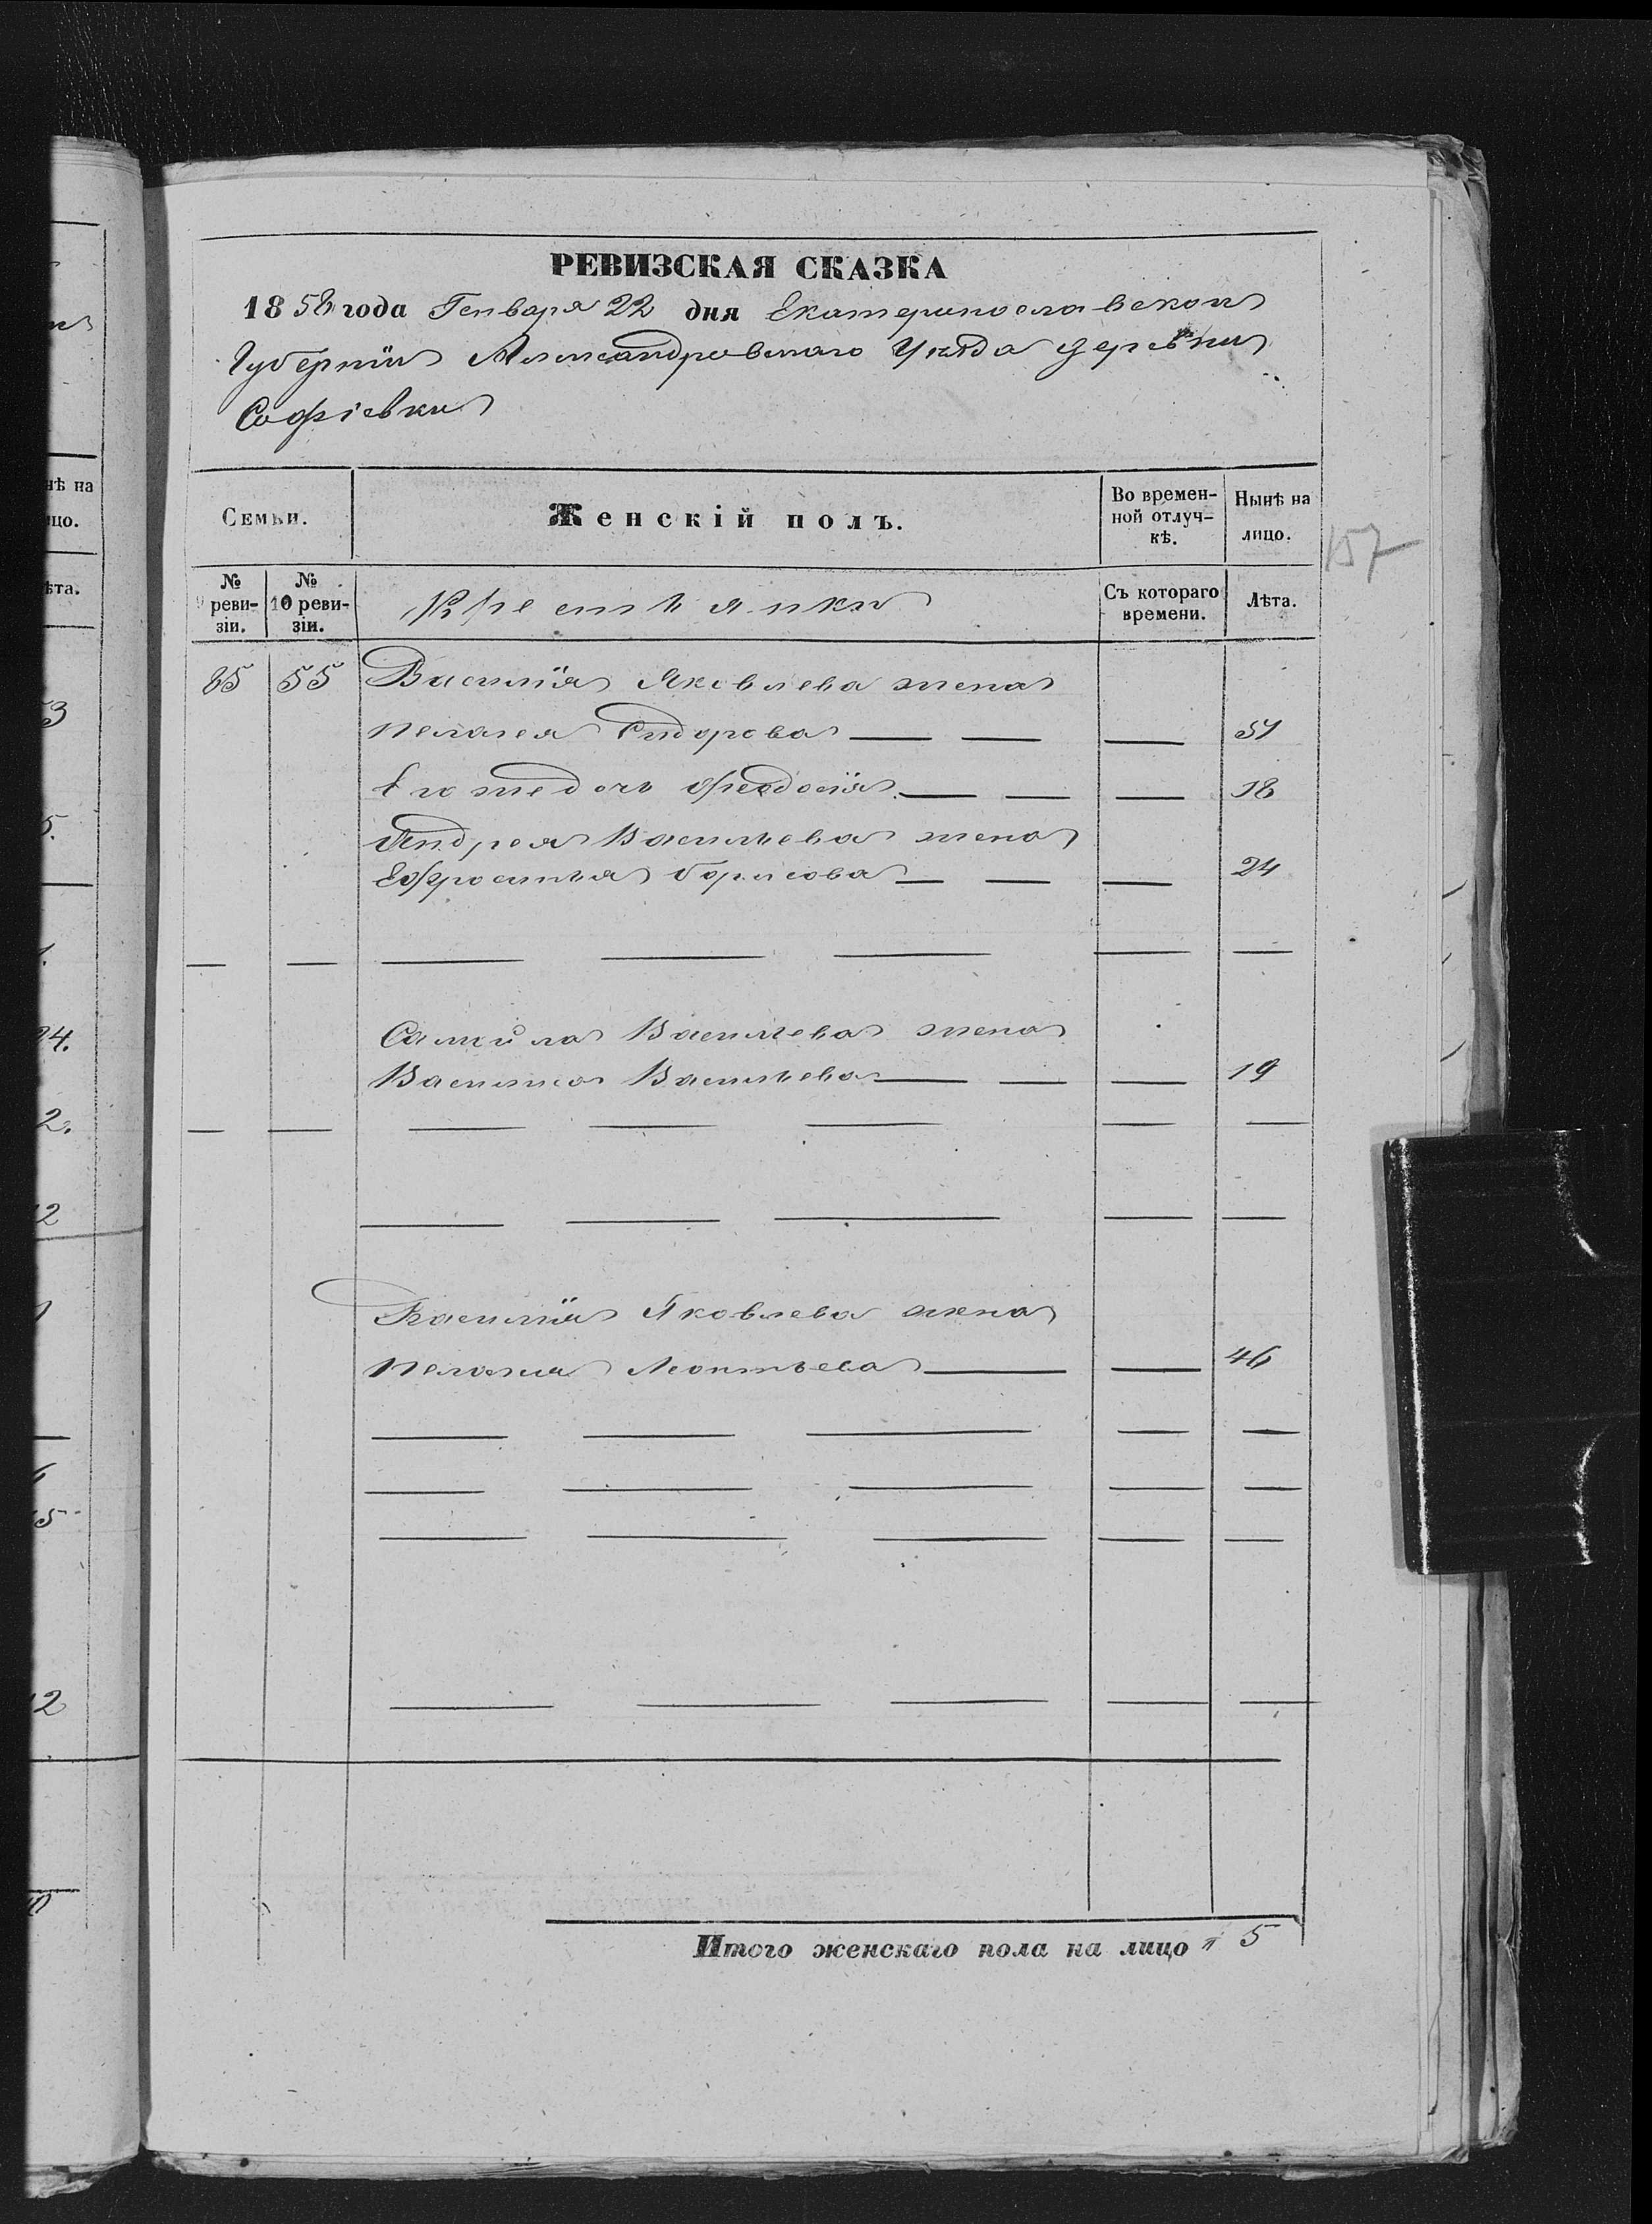 РЕВИЗСКАЯ СКАЗКА
1858 года Генваря 22 дня Екатеринославской
Губерніи Александровскаго Уѣзда деревни
Софіевки
Семьи.
Женскій полъ.
Во времен-
ной отлуч-
кѣ.
Нынѣ на
лицо.
157
№
реви-
зіи.
№
10 реви-
зіи.
Крестьянки
Съ котораго
времени.
Лѣта.
85 55 Василія Яковлева жена
Пелагея Сидорова — — — 51
Его же дочь Феодосія — — — 18
Андрея Васильева жена
Ефросинья Борисова — — — 24
Самойла Васильева жена
Василиса Васильева — — — 19
Василія Яковлева жена
Пелагия Леонтьева — — 46
Итого женскаго пола на лицо 5
нѣ на
ицо.
ѣта.
3
5.
1.
24.
2.
12
15
12